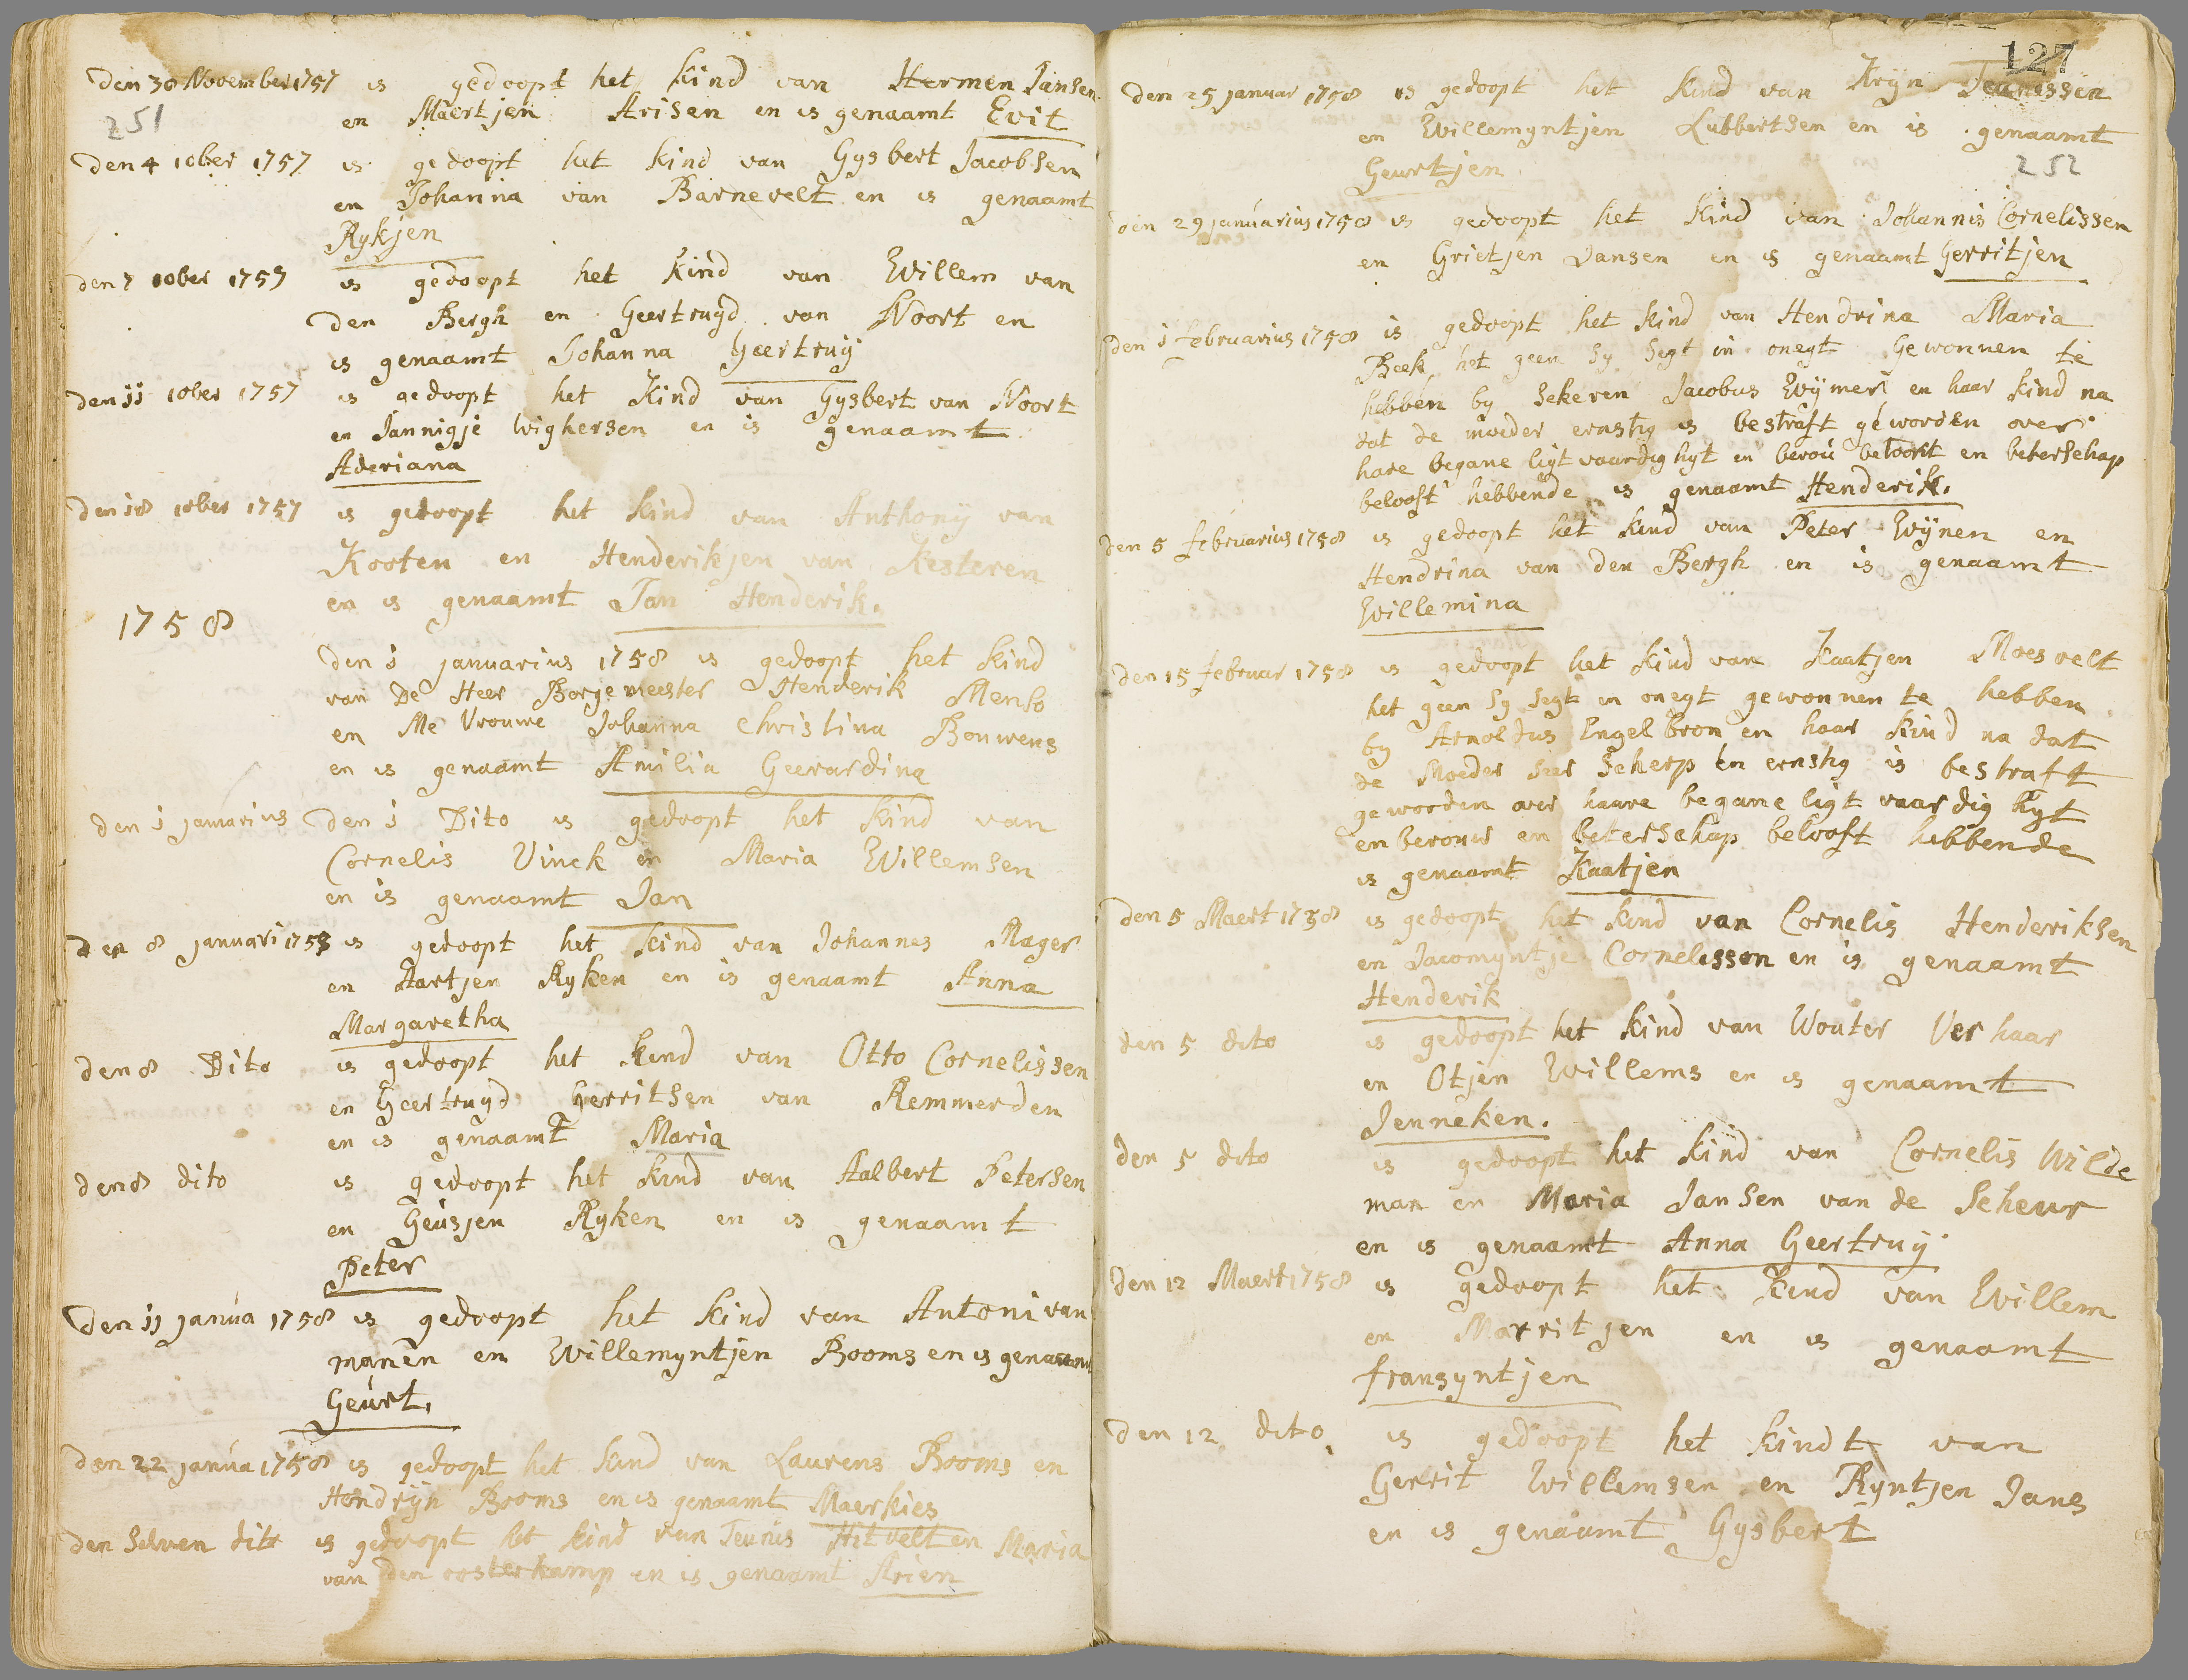 den 30 November 1757 is gedoopt het kind van Hermen Jansen
251
en Maertjen Arisen en is genaamt Evit
den 4 10ber 1757 is gedoopt het kind van Gysbert Jacobsen
en Johanna van Barnevelt en is genaamt
Rykjen
den 7 10ber 1757 is gedoopt het kind van Willem van
den Bergh en Geertruyd van Noort en
is genaamt Johanna Geertruy
den 11 10ber 1757 is gedoopt het Kind van Gysbert van Noort
en Jannigje Wighersen en is genaamt
Aderiana
den 18 10ber 1757 is gedoopt het kind van Anthony van
Kooten en Henderikjen van Kesteren
en is genaamt Jan Henderik.
1758
den 1 januarius 1758 is gedoopt het kind
van De Heer Borgemeester Henderik Menso
en Me Vrouwe Johanna Christina Bouwens
en is genaamt Amilia Geerardina
den 1 januarius den 1 Dito is gedoopt het kind van
Cornelis Vinck en Maria Willemsen
en is genaamt Jan
den 8 januari 1758 is gedoopt het kind van Johannes Mager
en Aartjen Ryken en is genaamt Anna
Margaretha
den 8 Dito is gedoopt het kind van Otto Cornelissen
en Geertruyd Gerritsen van Remmerden
en is genaamt Maria
den 8 dito is gedoopt het kind van Aalbert Petersen
en Geusjen Ryken en is genaamt
Peter
den 11 janua 1758 is gedoopt het kind van Antoni van
manen en Willemyntjen Booms en is genaamt
Geurt.
den 22 janua 1758 is gedoopt het kind van Laurens Booms en
Hendrijn Booms en is genaamt Maerkies
den selven dito is gedoopt het kind van Teunis Hitvelt en Maria
van den oosterkamp en is genaamt Arien
127
den 25 januar 1758 is gedoopt het kind van Krijn Teunissen
en Willemyntjen Lubbertsen en is genaamt
Geurtjen
252
den 29 januarius 1758 is gedoopt het kind van Johannis Cornelissen
en Grietjen Jansen en is genaamt Gerritjen
den 1 februarius 1758 is gedoopt het kind van Hendrina Maria
Beek het geen sy segt in onegt Gewonnen te
hebben by Sekeren Jacobus Wijmer en haar kind na
dat de moeder ernstig is bestraft geworden over
hare begane ligtvaardighyt en berou betoont en beterschap
belooft hebbende is genaamt Henderik.
den 5 februarius 1758 is gedoopt het kind van Peter Wijnen en
Hendrina van den Bergh en is genaamt
Willemina
den 15 februar 1758 is gedoopt het kind van Kaatjen Moesvelt
het geen sy segt in onegt gewonnen te hebben
by Arnoldus Engelbron en haar kind na dat
de Moeder seer scherp en ernstig is bestraft
geworden over haare begane ligtvaardighyt
en berouw en beterschap belooft hebbende
is genaamt Kaatjen
den 5 Maert 1758 is gedoopt het kind van Cornelis Henderiksen
en Jacomyntje Cornelissen en is genaamt
Henderik
den 5 dito is gedoopt het kind van Wouter Verhaar
en Otjen Willems en is genaamt
Jenneken.
den 5 dito is gedoopt het kind van Cornelis Wilde
man en Maria Jansen van de Scheur
en is genaamt Anna Geertruy
den 12 Maert 1758 is gedoopt het kind van Willem
en Marritjen en is genaamt
fransyntjen
den 12 dito is gedoopt het kindt van
Gerrit Willemsen en Ryntjen Jans
en is genaamt Gysbert